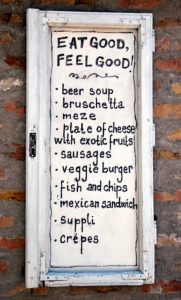 EAT GOOD,
FEEL GOOD!
• beer soup
• bruschetta
• meze
• plate of cheese
with exotic fruits
• sausages
• veggie burger
• fish and chips
• mexican sandwich
• suppli
• crêpes